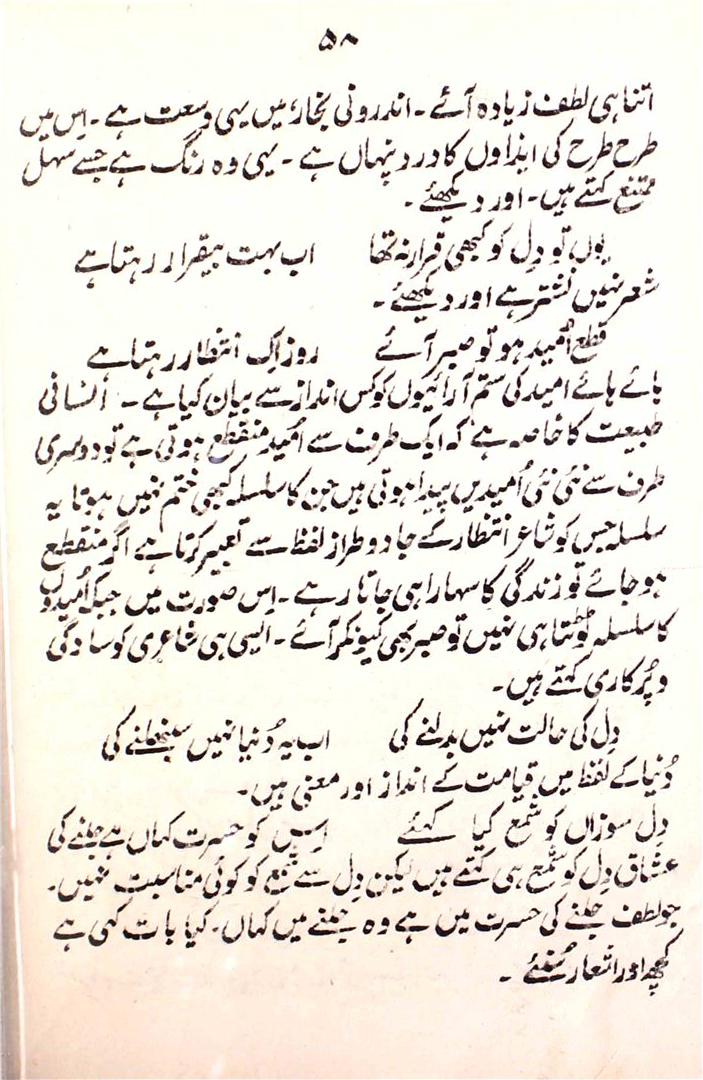 ۵۸
اتنا ہی لطف زیادہ آئے ۔ اندرونی بخار، میں یہی وسعت ہے ۔ اِس میں
طرح طرح کی ایذاوں کا درد پنہاں ہے ۔ یہی وہ رنگ ہے جسے سہل
ممتنع کہتے ہیں ۔ اور دیکھئے ۔
یوں تو دِل کو کبھی قرار نہ تھا اب بہت بیقرار رہتا ہے
شعر نہیں نشتر ہے اور دیکھئے ۔
قطع اُمید ہو تو صبر آئے روز اِک انتظار رہتا ہے
ہائے ہائے امید کی ستم آرائیوں کو کس انداز سے بیان کیا ہے ۔ انسانی
طبیعت کا خاصہ ہے کہ ایک طرف سے اُمید منقطع ہوتی ہے تو دوسری
طرف سے نئی نئی اُمیدیں پیدا ہوتی ہیں جن کا سلسلہ کبھی ختم نہیں ہوتا یہ
سلسلہ جس کو شاعر انتظار کے جادو طراز لفظ سے تعبیر کرتا ہے اگر منقطع
ہو جائے تو زندگی کا سہارا ہی جاتا رہے ۔ اِس صورت میں جبکہ اُمیدوں
کا سلسلہ ٹوٹتا ہی نہیں تو صبر بھی کیونکر آئے ۔ ایسی ہی شاعری کو سادگی
و پُرکاری کہتے ہیں ۔
دِل کی حالت نہیں بدلنے کی اب یہ دُنیا نہیں سنبھلنے کی
دُنیا کے لفظ میں قیامت کے انداز اور معنی ہیں ۔
دِل سوزاں کو شمع کیا کہئے اِس کو حسرت کہاں ہے جلنے کی
عشاق دِل کو شمع ہی کہتے ہیں لیکن دِل سے شمع کو کوئی مناسبت نہیں ۔
جو لطف جلنے کی حسرت میں ہے وہ جلنے میں کہاں ۔ کیا بات کہی ہے
کچھ اور اشعار سُنئے ۔